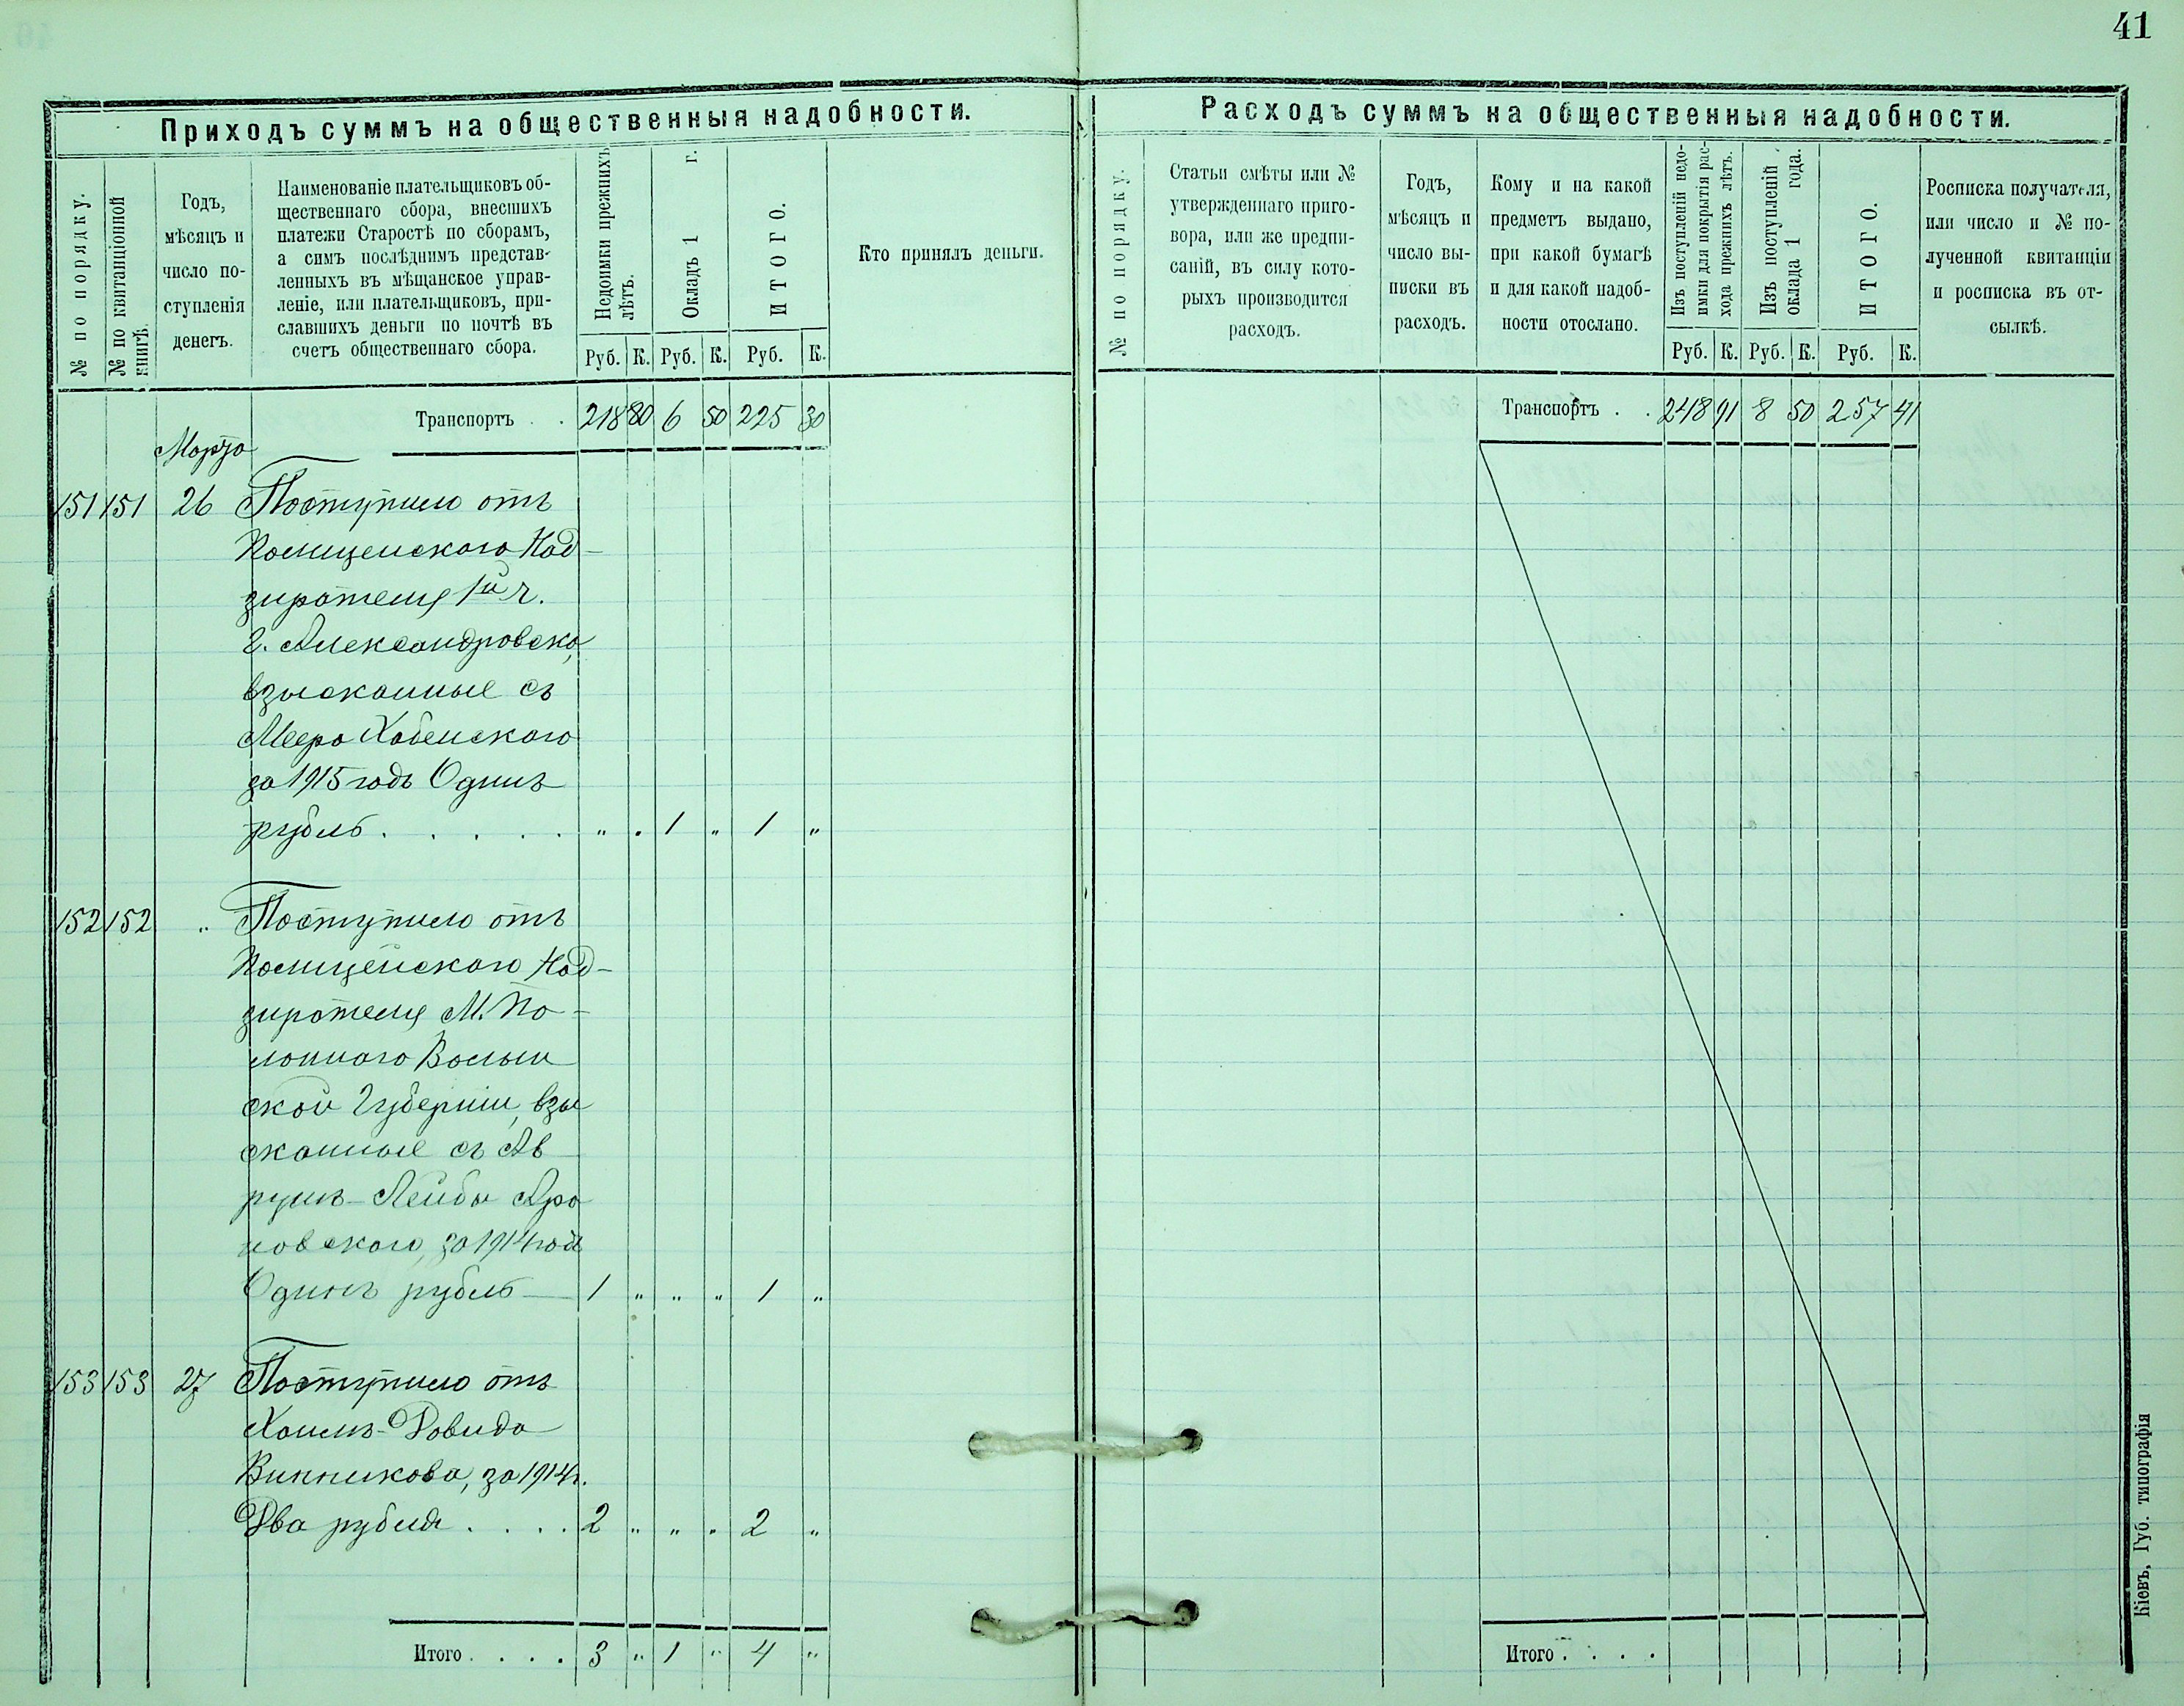 41
Приходъ суммъ на общественныя надобности.
№ по порядку.
№ по квитанціонной
книгѣ.
Годъ,
мѣсяцъ и
число по-
ступленія
денегъ.
Наименованіе плательщиковъ об-
щественнаго сбора, внесшихъ
платежи Старостѣ по сборамъ,
а симъ послѣднимъ представ-
ленныхъ въ мѣщанское управ-
леніе, или плательщиковъ, при-
славшихъ деньги по почтѣ въ
счетъ общественнаго сбора.
Недоимки прежнихъ
лѣтъ.
Окладъ 1 г.
ИТОГО.
Руб. К. Руб. К. Руб. К.
Кто принялъ деньги.
Транспортъ . . 218 80 6 50 225 30
Марта
151 151 26 Поступило отъ
Полицейского Над-
зирателя 1й ч.
г. Александровска,
взысканные съ
Меера Хабенского
за 1915 годъ Одинъ
рубль. . . . . „ . 1 „ 1 „
152 152 „ Поступило отъ
Полицейского Над-
зирателя М. По-
лонного Волын
ской Губерніи, взы
сканные съ Ав
румъ-Лейбы Аро
новского, за 1914 годъ
Одинъ рубль — 1 „ „ „ 1 „
153 153 27 Поступило отъ
Хаимъ-Довида
Винникова, за 1914 г.
Два рубля . . . . 2 „ „ „ 2 „
Итого . . . . 3 „ 1 „ 4 „
Расходъ суммъ на общественныя надобности.
№ по порядку.
Статьи смѣты или №
утвержденнаго приго-
вора, или же предпи-
саній, въ силу кото-
рыхъ производится
расходъ.
Годъ,
мѣсяцъ и
число вы-
писки въ
расходъ.
Кому и на какой
предметъ выдано,
при какой бумагѣ
и для какой надоб-
ности отослано.
Изъ поступленій недо-
имки для покрытія рас-
хода прежнихъ лѣтъ.
Изъ поступленій
оклада 1 года.
ИТОГО.
Руб. К. Руб. К. Руб. К.
Росписка получателя,
или число и № по-
лученной квитанціи
и росписка въ от-
сылкѣ.
Транспортъ . . 248 91 8 50 257 41
Итого . . . .
Кіевъ, Губ. типографія